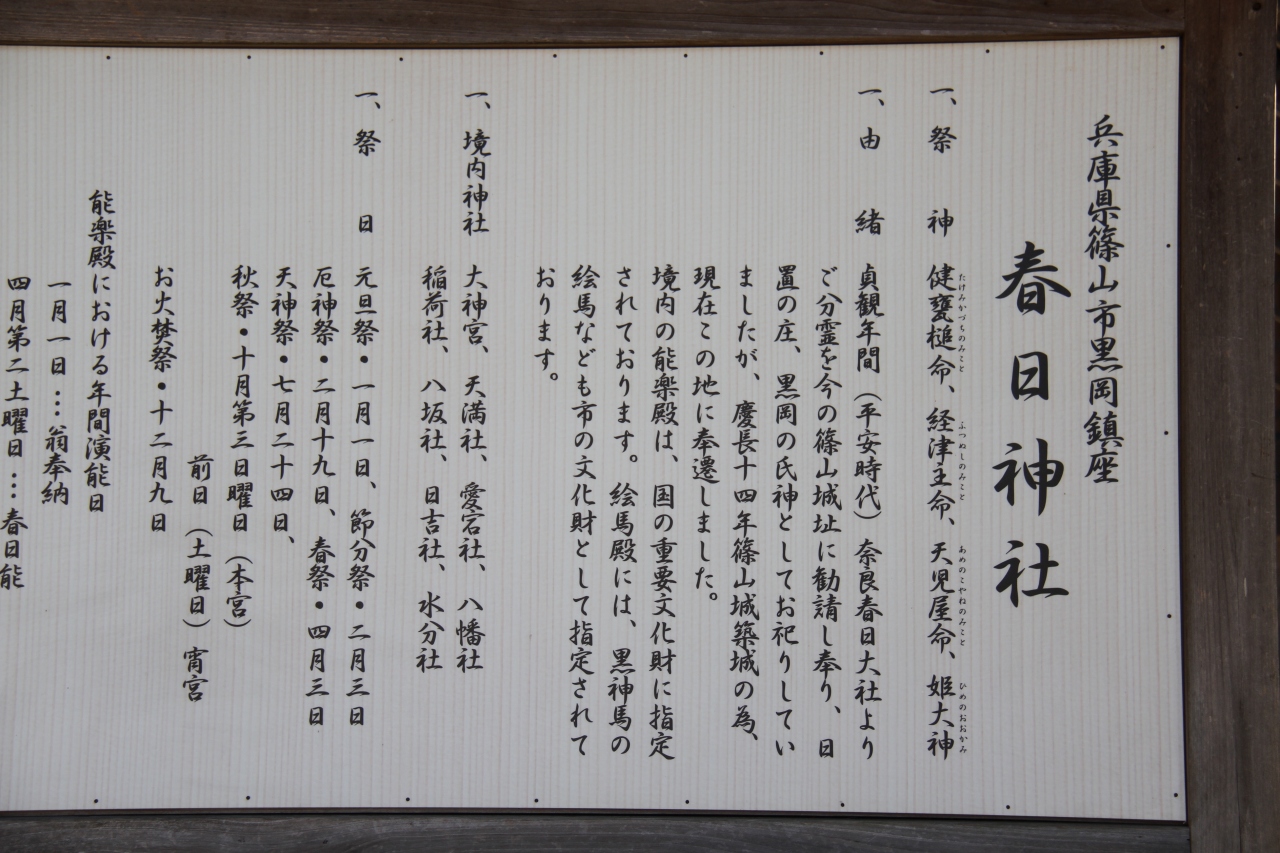 兵庫県篠山市黒岡鎮座
春日神社
一、祭神 健甕槌命、経津主命、天児屋命、姫大神
たけみかづちのみこと ふつぬしのみこと あめのこやねのみこと ひめのおおかみ
一、由緒 貞観年間（平安時代）奈良春日大社より
ご分霊を今の篠山城址に勧請し奉り、日
置の庄、黒岡の氏神としてお祀りしてい
ましたが、慶長十四年篠山城築城の為、
現在この地に奉遷しました。
境内の能楽殿は、国の重要文化財に指定
されております。絵馬殿には、黒神馬の
絵馬なども市の文化財として指定されて
おります。
一、境内神社 大神宮、天満社、愛宕社、八幡社
稲荷社、八坂社、日吉社、水分社
一、祭日 元旦祭・一月一日、節分祭・二月三日
厄神祭・二月十九日、春祭・四月三日
天神祭・七月二十四日、
秋祭・十月第三日曜日（本宮）
前日（土曜日）宵宮
お火焚祭・十二月九日
能楽殿における年間演能日
一月一日…翁奉納
四月第二土曜日…春日能